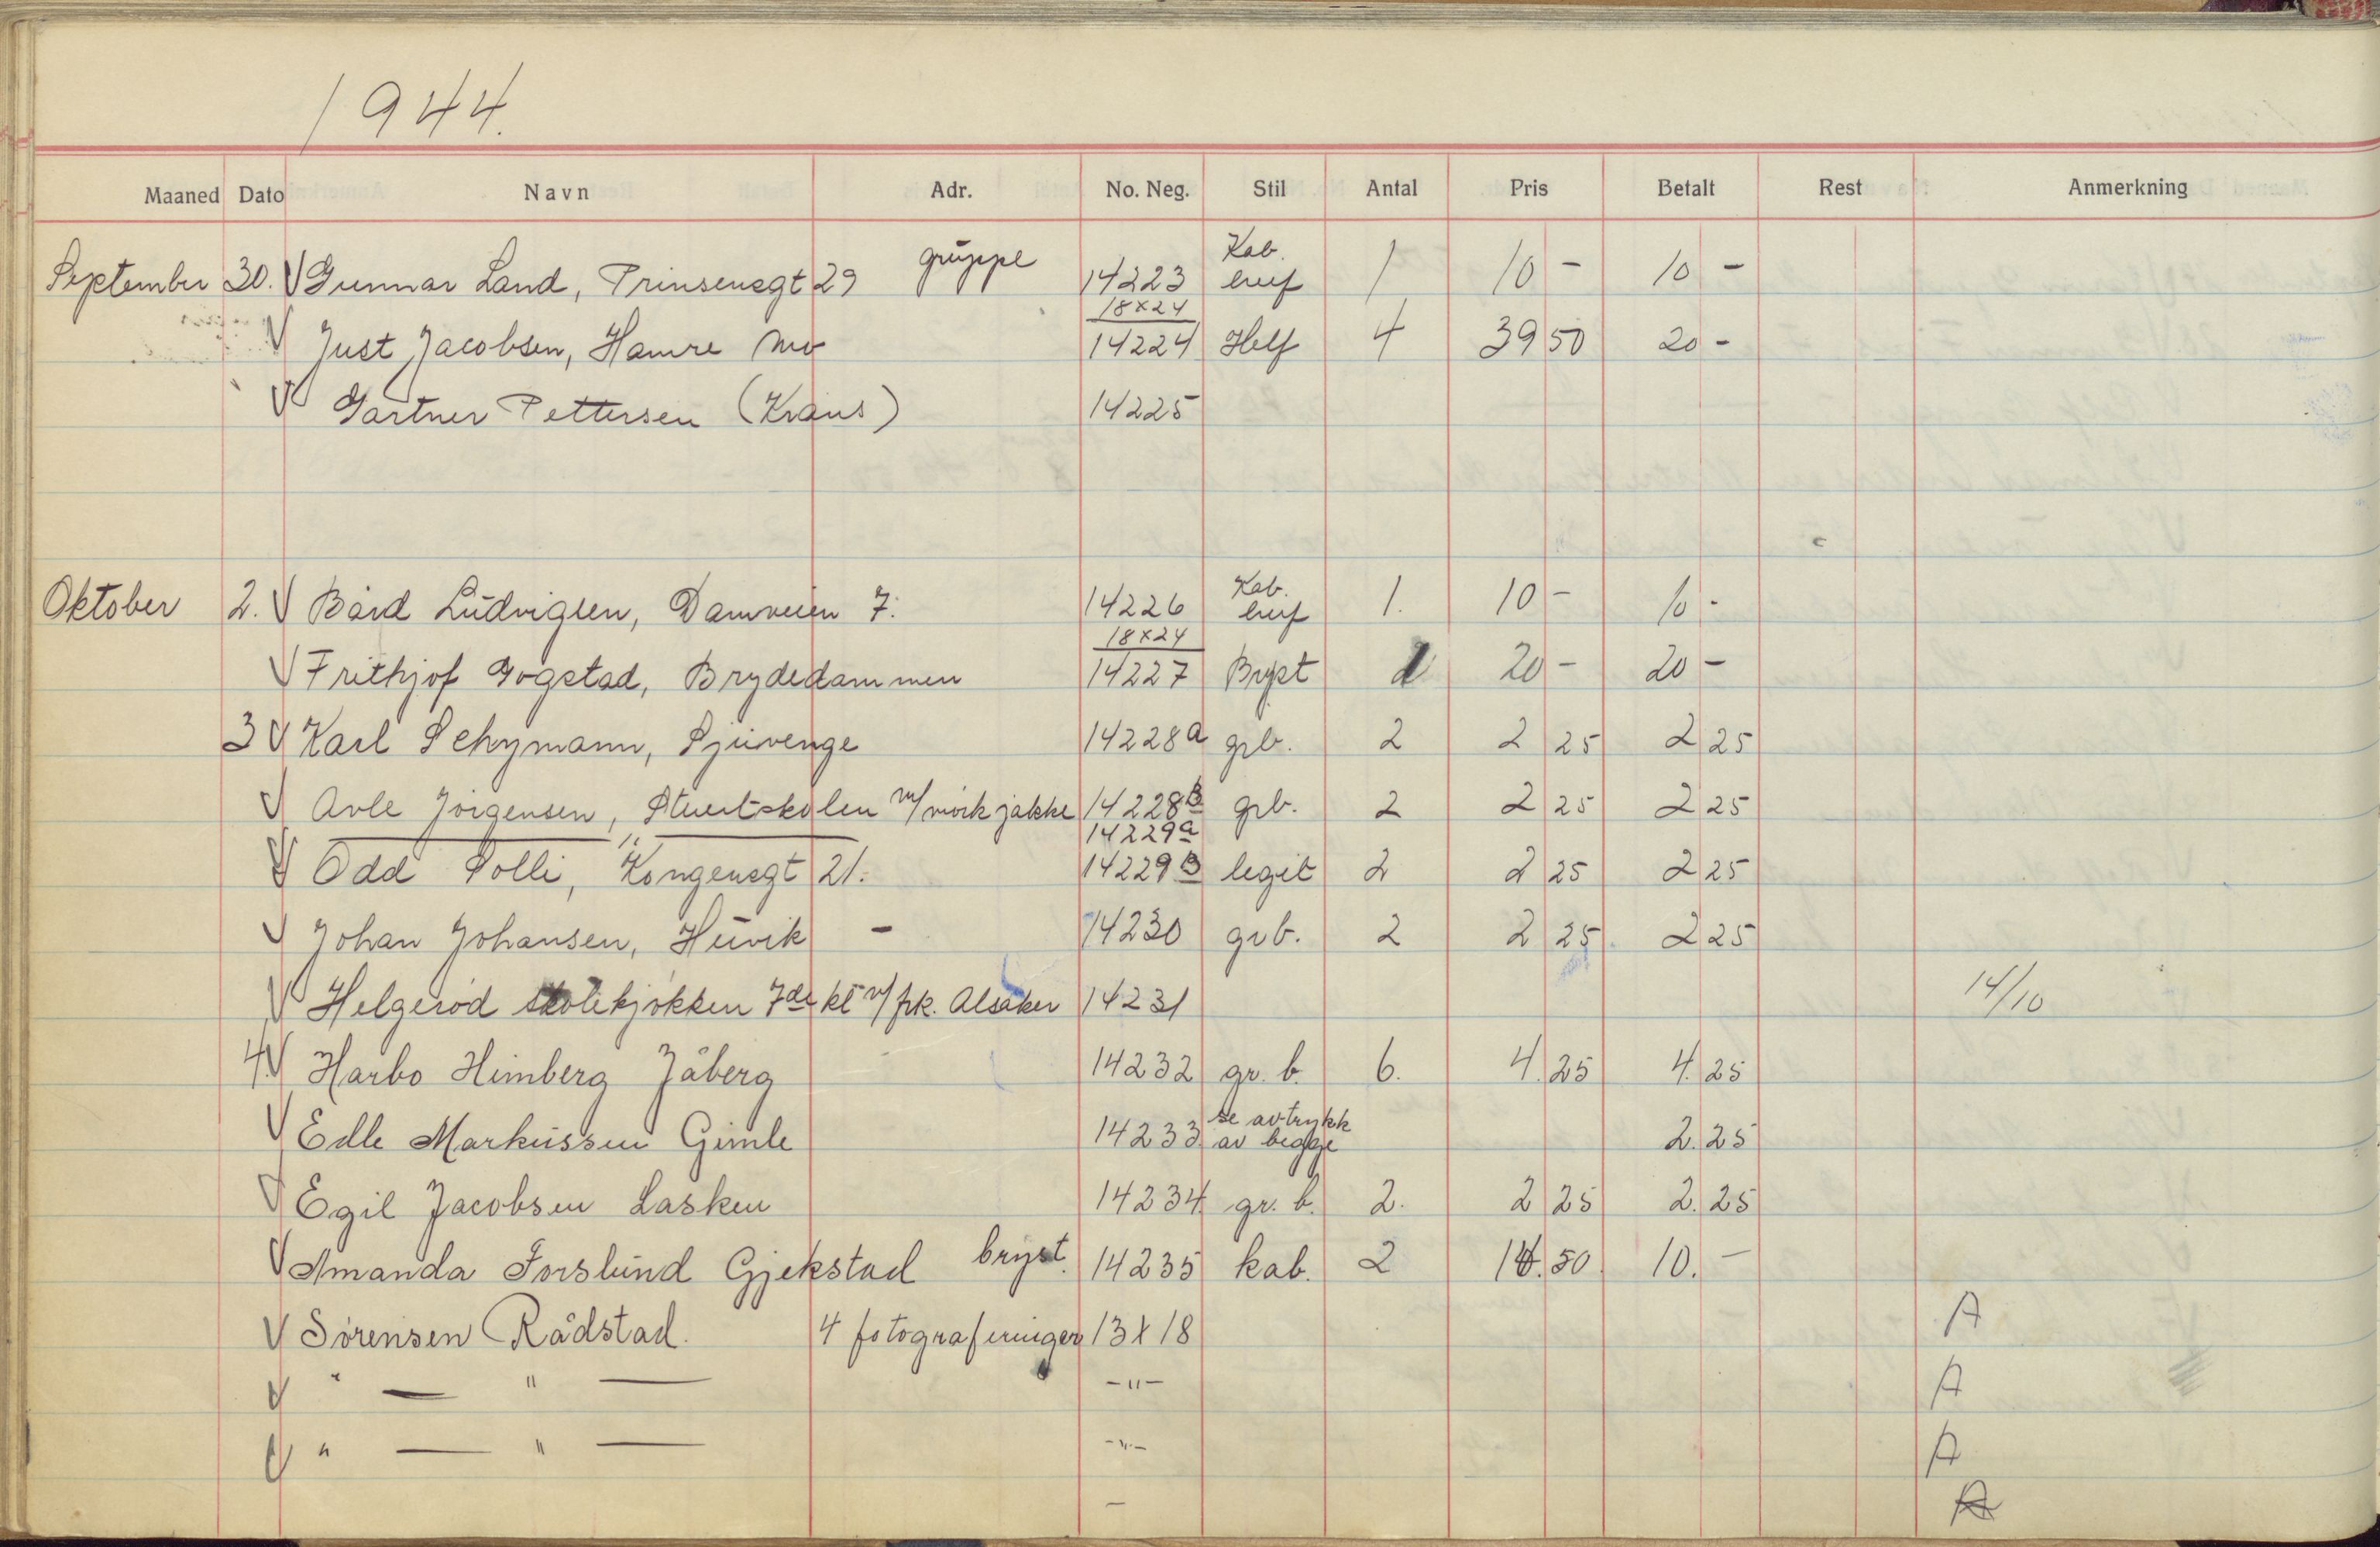 1944.
Maaned Dato Navn Adr. No. Neg. Stil Antal Pris Betalt Rest Anmerkning
September 30. V Gunnar Land, Prinsensgt 29 gruppe 14223 Kab. 1 10 - 10 -
18x24
V Just Jacobsen, Hamre Mo 14224 Helf 4 39 50 20 -
V Gartner Pettersen (Krans) 14225
Oktober 2. V Bård Ludvigsen, Damveien 7. 14226 Kab. 1. 10 - 10 -
18x24
V Frithjof Gogstad, Brydedammen 14227 Bryst 20 - 20 -
3 V Karl Schymann, 14228a grb. 2 2 25 2 25
V Arle Jörgensen, Stuertskolen m/mörk jakke 14228B grb. 2 2 25 2 25
14229a
V Odd Solli, Kongensgt 21. 14229B legit 2 2 25 2 25
V Johan Johansen, Huvik - 14230 grb. 2 2 25 2 25
V Helgeröd skolekjökken 7de kl v/ frk. Alsaker 14231 14/10
4. V Harbo Himberg Jåberg 14232 gr. b. 6. 4. 25 4. 25
V Edle Markussen Gimle 14233 se avtrykk av begge 2. 25
V Egil Jacobsen Lasken 14234 gr. b. 2. 2 25 2. 25
V Amanda Forslund Gjekstad bryst. 14235 kab. 2 50 10. -
V Sörensen Rådstad. 4 fotograferinger 13x18 A
V " — " — -"- A
V " — " — -"- A
- A